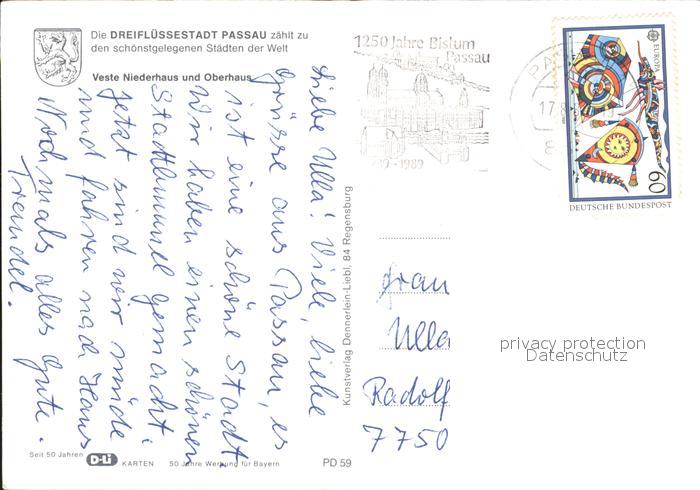 Die DREIFLÜSSESTADT PASSAU zählt zu
den schönstgelegenen Städten der Welt
Veste Niederhaus und Oberhaus
Liebe Ulla! Viele, liebe
Grüsse aus Passau, es
ist eine schöne Stadt.
Wir haben einen schönen
Stadtbummel gemacht.
Jetzt sind wir müde
und fahren nach Haus
Nochmals alles Gute.
Traudel.
Seit 50 Jahren
D-Li KARTEN
50 Jahre Werbung für Bayern
PD 59
Kunstverlag Dennerlein-Liebl, 84 Regensburg
1250 Jahre Bistum
Passau
-1989
17.8
8
EUROPA
60
DEUTSCHE BUNDESPOST
Frau
Ulla
Radolf
7750
privacy protection
Datenschutz